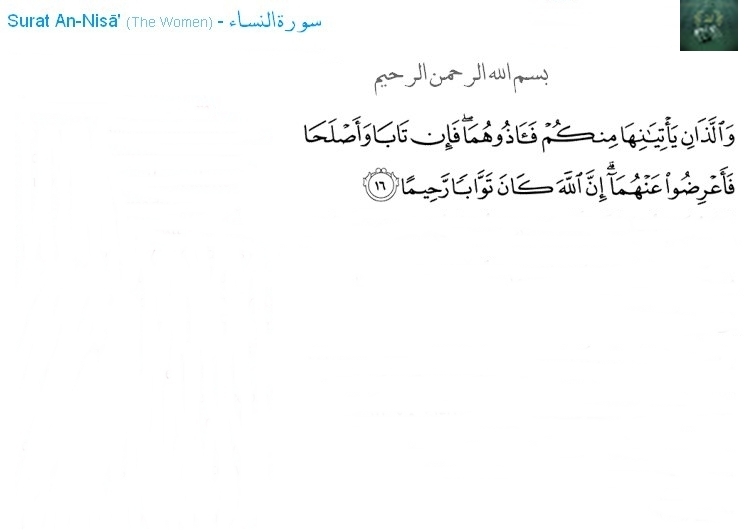 Surat An-Nisā' (The Women) - سورة النساء
بسم الله الرحمن الرحيم
وَٱلَّذَانِ يَأْتِيَـٰنِهَا مِنكُمْ فَـَٔاذُوهُمَا ۖ فَإِن تَابَا وَأَصْلَحَا
فَأَعْرِضُوا۟ عَنْهُمَآ ۗ إِنَّ ٱللَّهَ كَانَ تَوَّابًا رَّحِيمًا ١٦